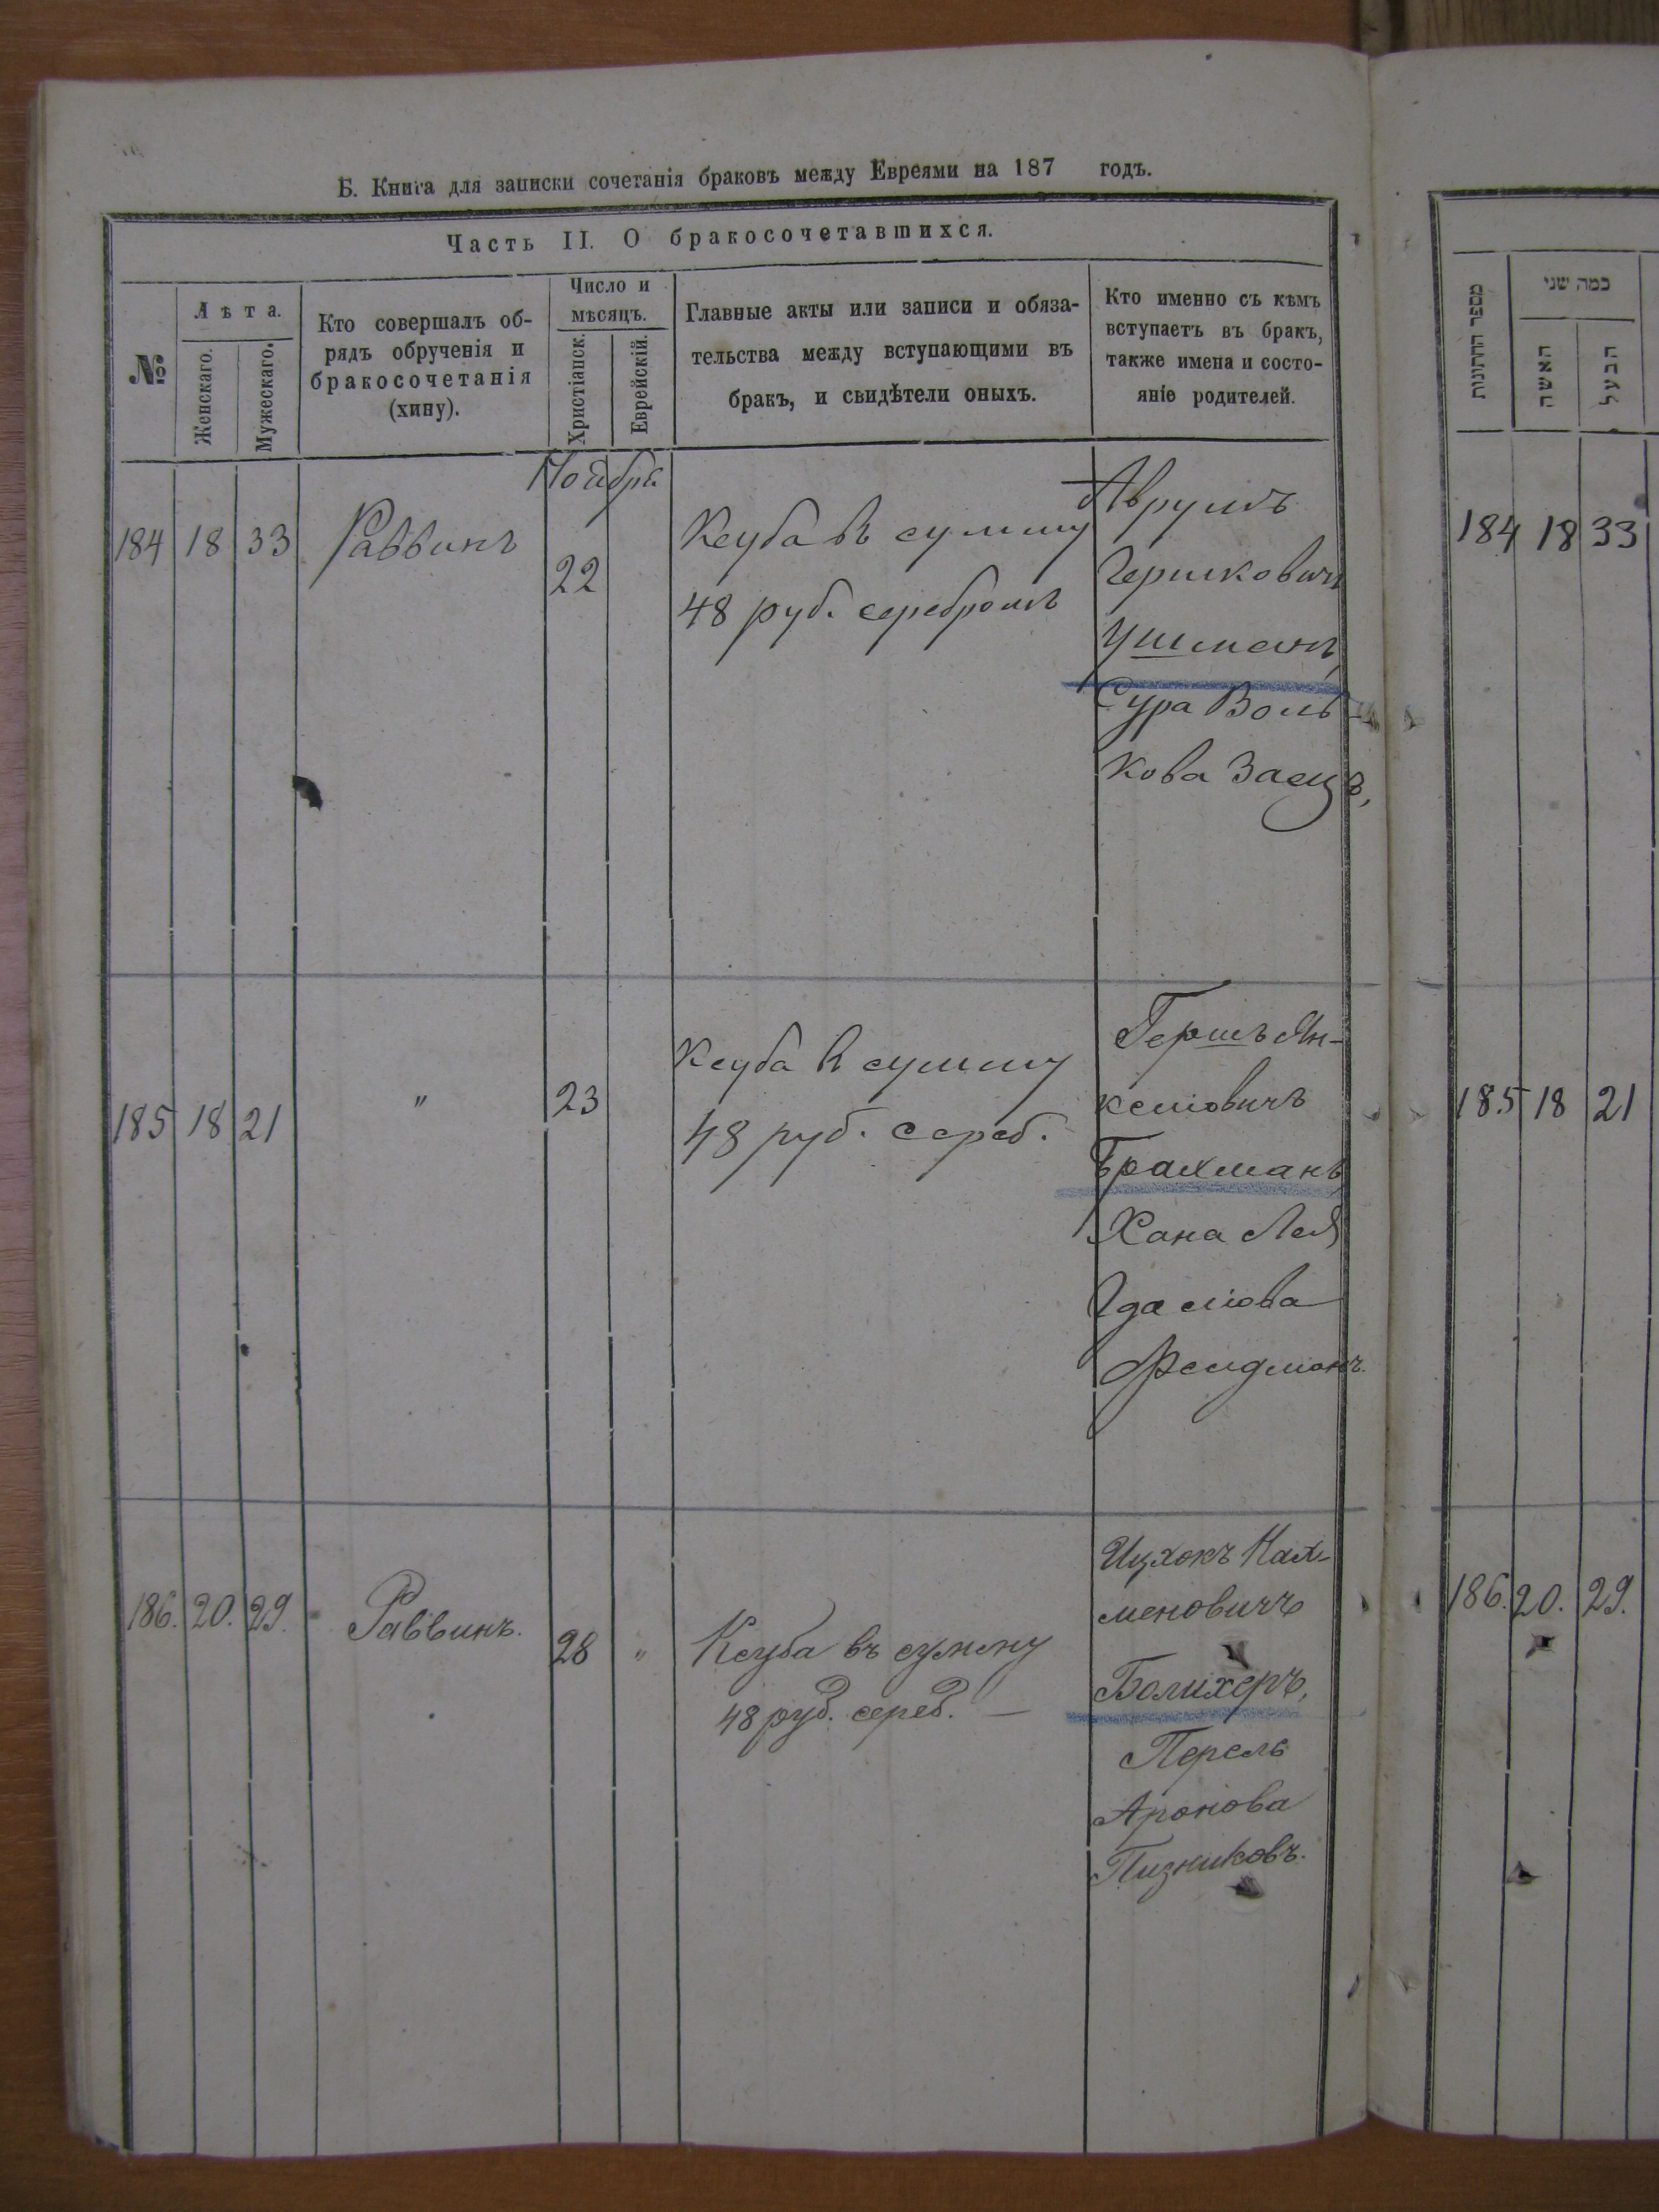 Б. Книга для записки сочетанія браковъ между Евреями на 187 годъ.
Часть II. О бракосочетавшихся.
№
Лѣта.
Женскаго.
Мужескаго.
Кто совершалъ об-
рядъ обрученія и
бракосочетанія
(хипу).
Число и
мѣсяцъ.
Христіанск.
Еврейскій.
Главные акты или записи и обяза-
тельства между вступающими въ
бракъ, и свидѣтели оныхъ.
Кто именно съ кѣмъ
вступаетъ въ бракъ,
также имена и состо-
яніе родителей.
Ноября
184 18 33 Раввинъ 22
Ксуба въ сумму
48 руб. серебромъ
Аврумъ
Гершковичъ
Ушманъ,
Сура Воль-
кова Заецъ,
185 18 21 " 23
Ксуба въ сумму
48 руб. сереб.
Гершъ Ян-
келіовичъ
Брахманъ,
Хана Лея
Гдаліова
Фельдманъ.
186. 20. 29. Раввинъ. 28 "
Ксуба въ сумму
48 руб. сереб. —
Ицхокъ Кал-
меновичъ
Болихеръ,
Перель
Аронова
Пизниковъ.
מספר החתונות
כמה שני
האשה
הבעל
184 18 33
185 18 21
186. 20. 29.